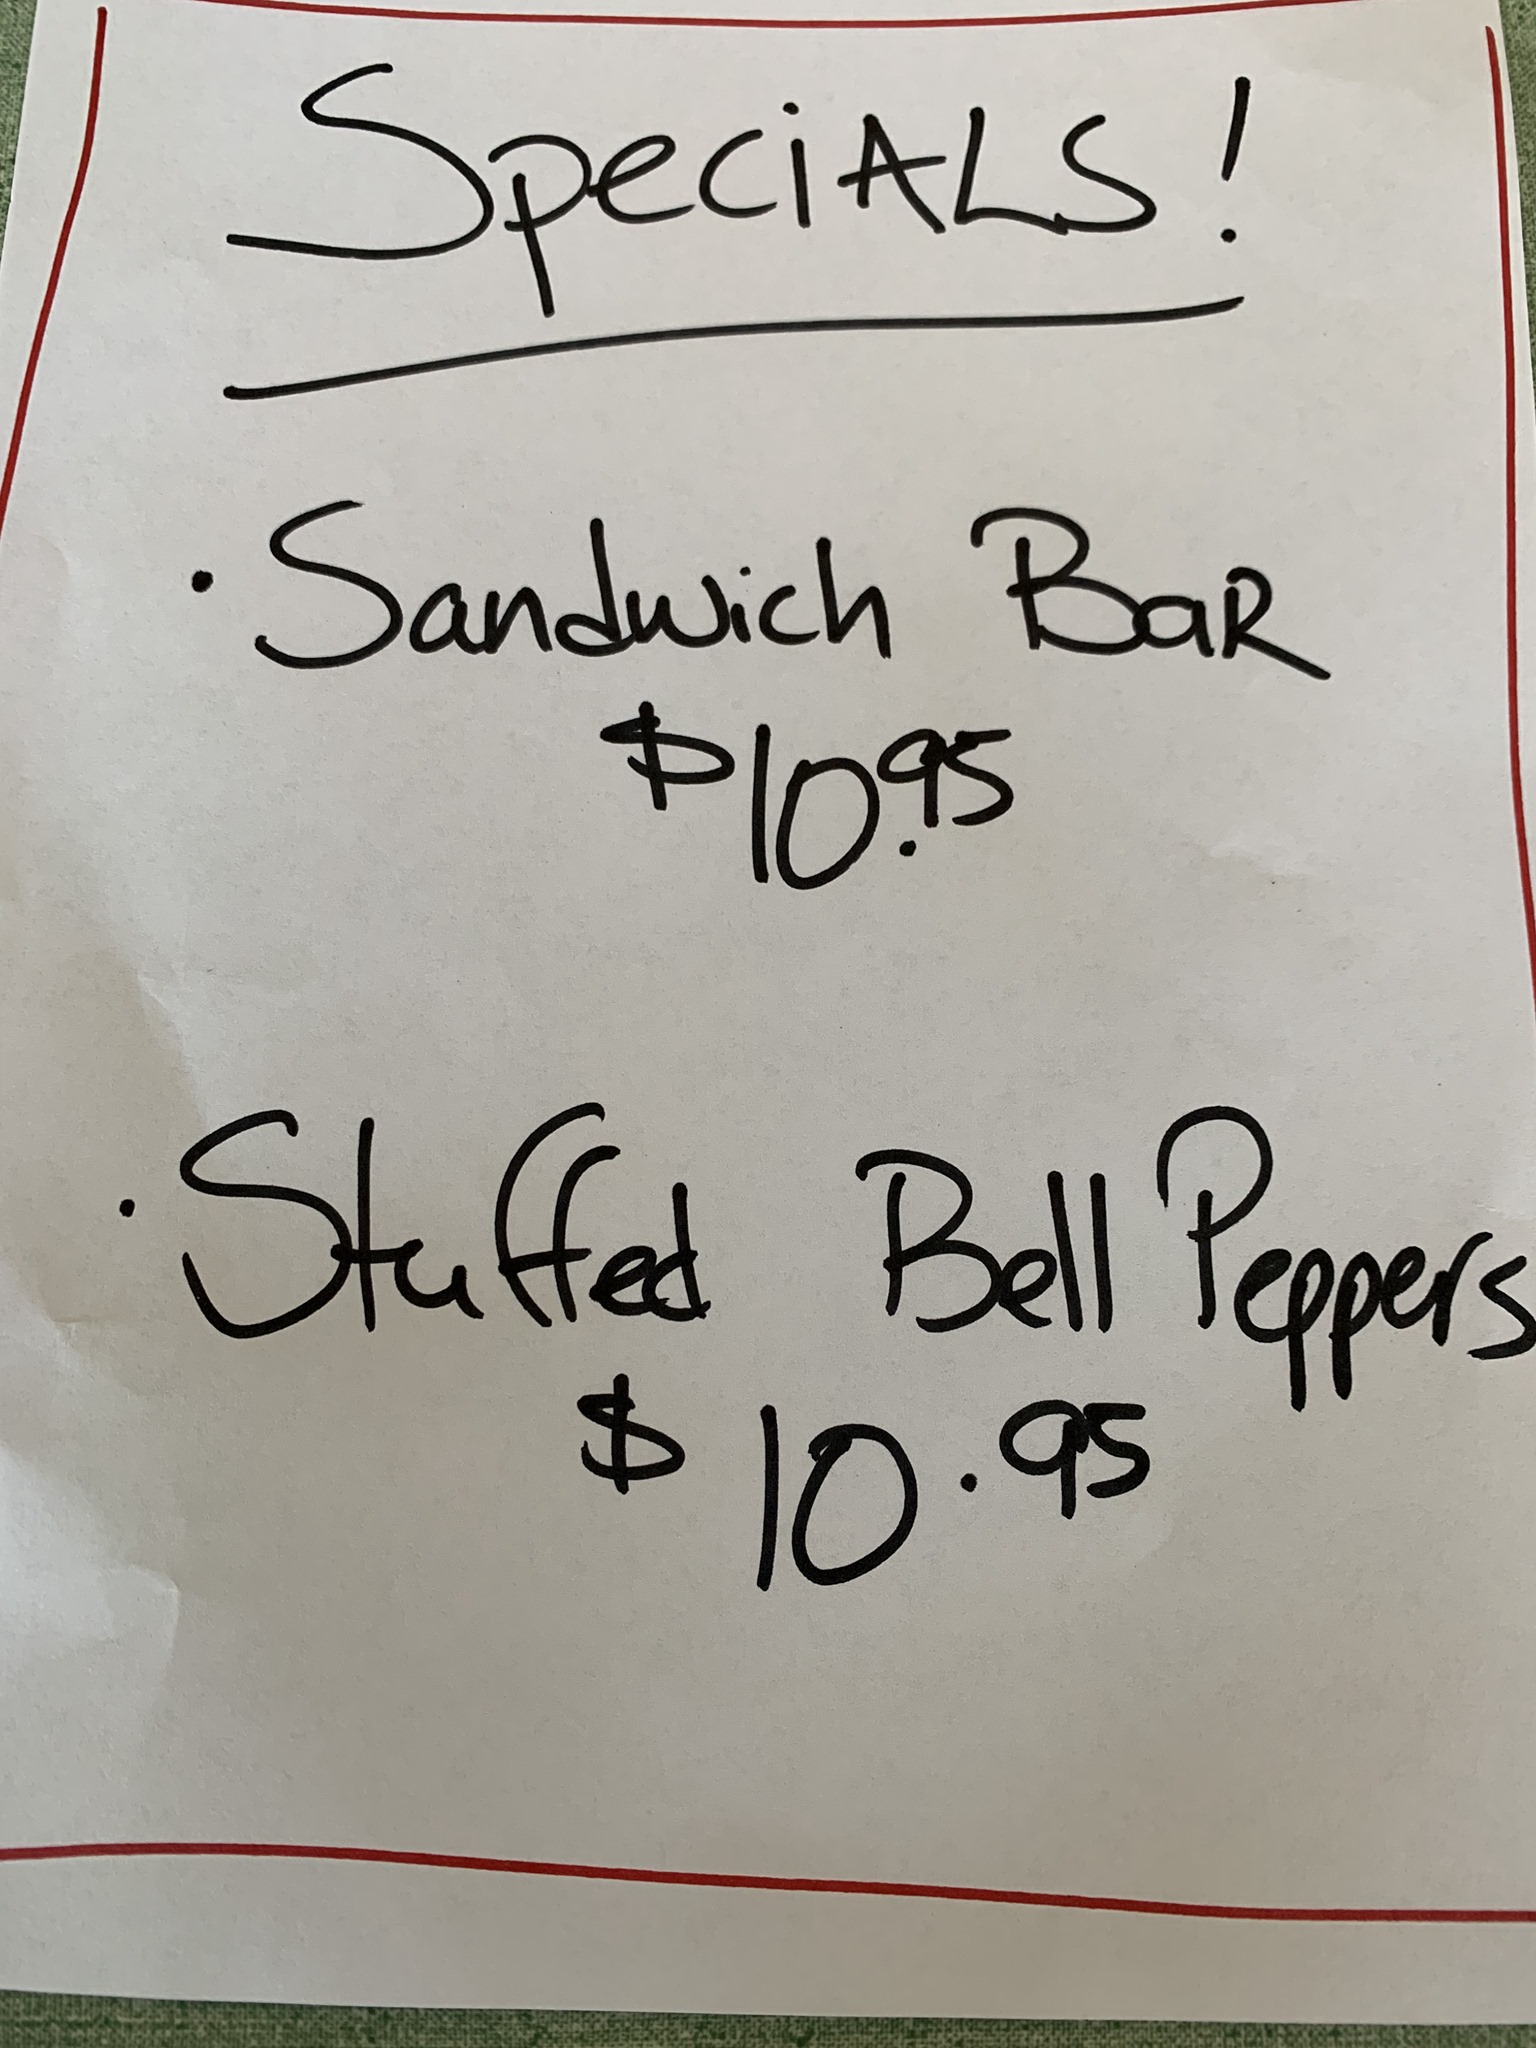 SpeciALS!
· Sandwich BaR
$10.95
· Stuffed Bell Peppers
$10.95